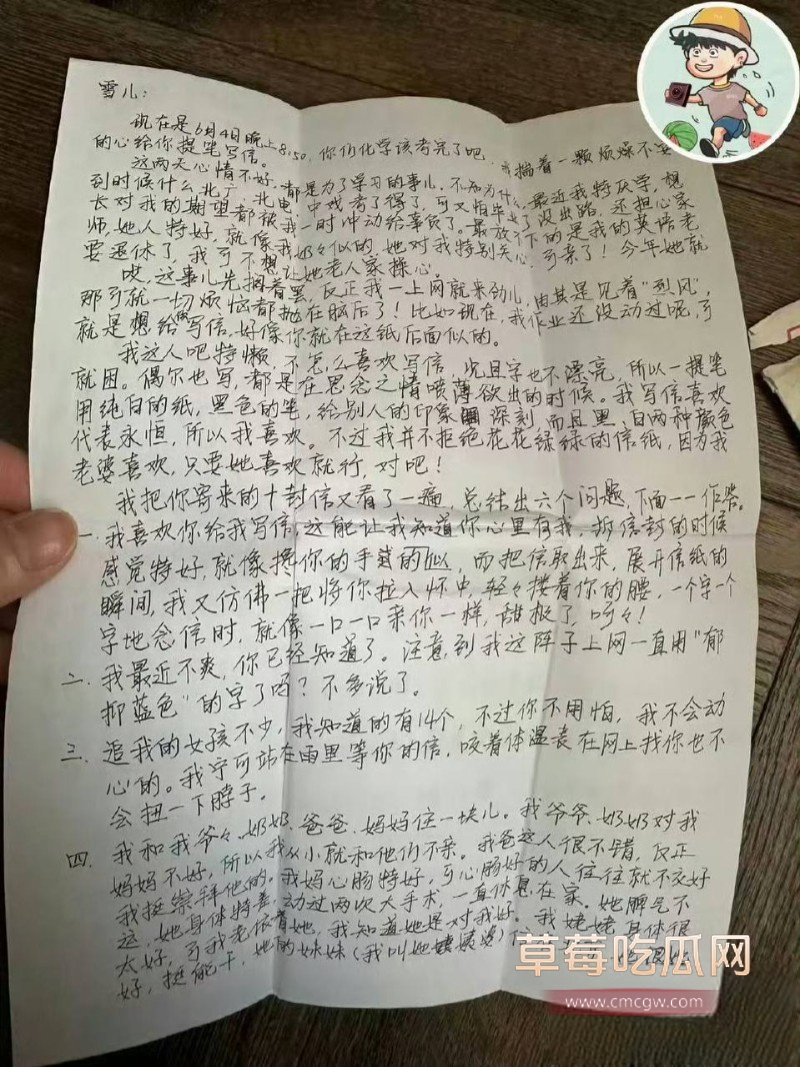 雪儿：
现在是6月4日晚上8:50，你们化学该考完了吧，我揣着一颗烦燥不安
的心给你提笔写信。
这两天心情不好，都是为了学习的事儿，不知为什么，最近我特厌学，想
到时候什么北广、北电、中戏考了得了，可又怕毕业了没出路，还担心家
长对我的期望都被我一时冲动给辜负了。最放不下的是我的英语老
师，她人特好，就像我奶々似的，她对我特别关心，可亲了！今年她就
要退休了，我可不想让她老人家操心。
哎，这事儿先搁着罢，反正我一上网就来劲儿，由其是见着“烈风”，
那可就一切烦恼都抛在脑后了！比如现在，我作业还没动过呢，可
就是想给你写信，好像你就在这纸后面似的。
我这人吧特懒，不怎么喜欢写信，况且字也不漂亮，所以一提笔
就困。偶尔也写，都是在思念之情喷薄欲出的时候。我写信喜欢
用纯白的纸，黑色的笔，给别人的印象深刻，而且黑、白两种颜色
代表永恒，所以我喜欢。不过我并不拒绝花花绿绿的信纸，因为我
老婆喜欢，只要她喜欢就行，对吧！
我把你寄来的十封信又看了一遍，总结出六个问题，下面一一作答。
一．我喜欢你给我写信，这能让我知道你心里有我，拆信封的时候
感觉特好，就像搀你的手似的，而把信取出来，展开信纸的
瞬间，我又仿佛一把将你拉入怀中，轻々搂着你的腰，一个字一个
字地念信时，就像一口一口亲你一样，甜极了，呵々！
二．我最近不爽，你已经知道了。注意到我这阵子上网一直用“郁
抑蓝色”的字了吗？不多说了。
三．追我的女孩不少，我知道的有14个，不过你不用怕，我不会动
心的。我宁可站在雨里等你的信，咬着体温表在网上找你也不
会扭一下脖子。
四．我和我爷々、奶奶、爸爸、妈妈住一块儿。我爷爷、奶奶对我
妈妈不好，所以我从小就和他们不亲。我爸这人很不错，反正
我挺崇拜他的。我妈心肠特好，可心肠好的人往往就不交好
运，她身体特差，动过两次大手术，一直休息在家。她脾气不
太好，可我老依着她，我知道她是对我好。我姥姥身体很
好，挺能干，她的妹妹（我叫她姨姥婆）住
草莓吃瓜网
www.cmcgw.com